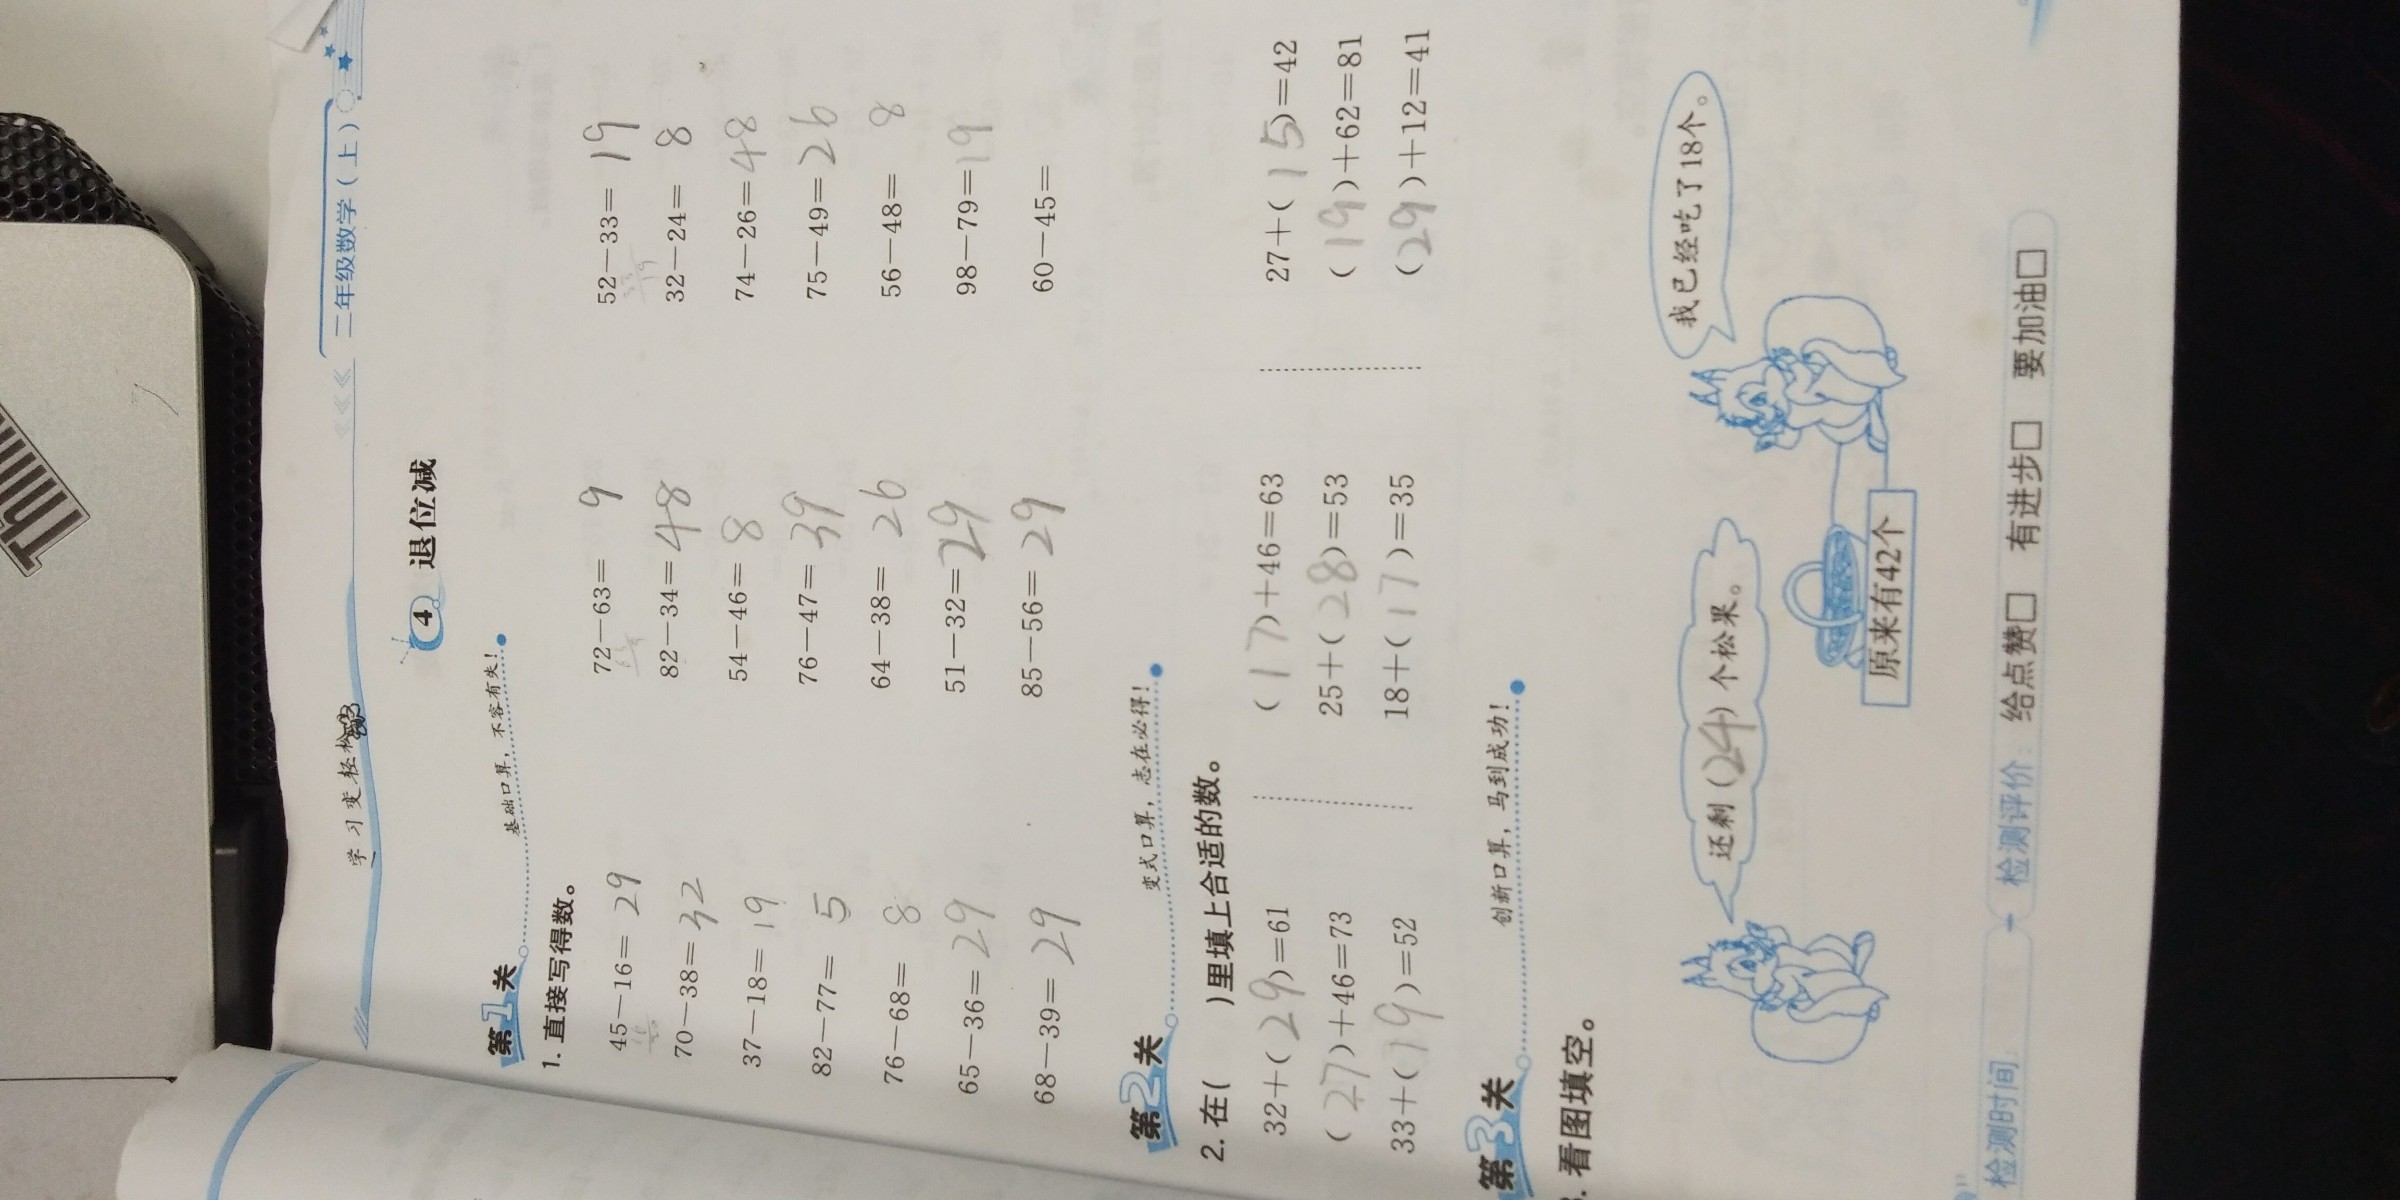 学习变轻松
二年级数学(上)
4 退位减
第1关 基础口算，不容有失！
1. 直接写得数。
45－16＝ 29 72－63＝ 9 52－33＝ 19
70－38＝ 32 82－34＝ 48 32－24＝ 8
37－18＝ 19 54－46＝ 8 74－26＝ 48
82－77＝ 5 76－47＝ 39 75－49＝ 26
76－68＝ 8 64－38＝ 26 56－48＝ 8
65－36＝ 29 51－32＝ 29 98－79＝ 19
68－39＝ 29 85－56＝ 29 60－45＝
第2关 变式口算，志在必得！
2. 在( )里填上合适的数。
32＋( 29 )＝61 ( 17 )＋46＝63 27＋( 15 )＝42
( 27 )＋46＝73 25＋( 28 )＝53 ( 19 )＋62＝81
33＋( 19 )＝52 18＋( 17 )＝35 ( 29 )＋12＝41
第3关 创新口算，马到成功！
. 看图填空。
还剩( 24 )个松果。
我已经吃了18个。
原来有42个
检测时间 检测评价： 给点赞□ 有进步□ 要加油□
Thin